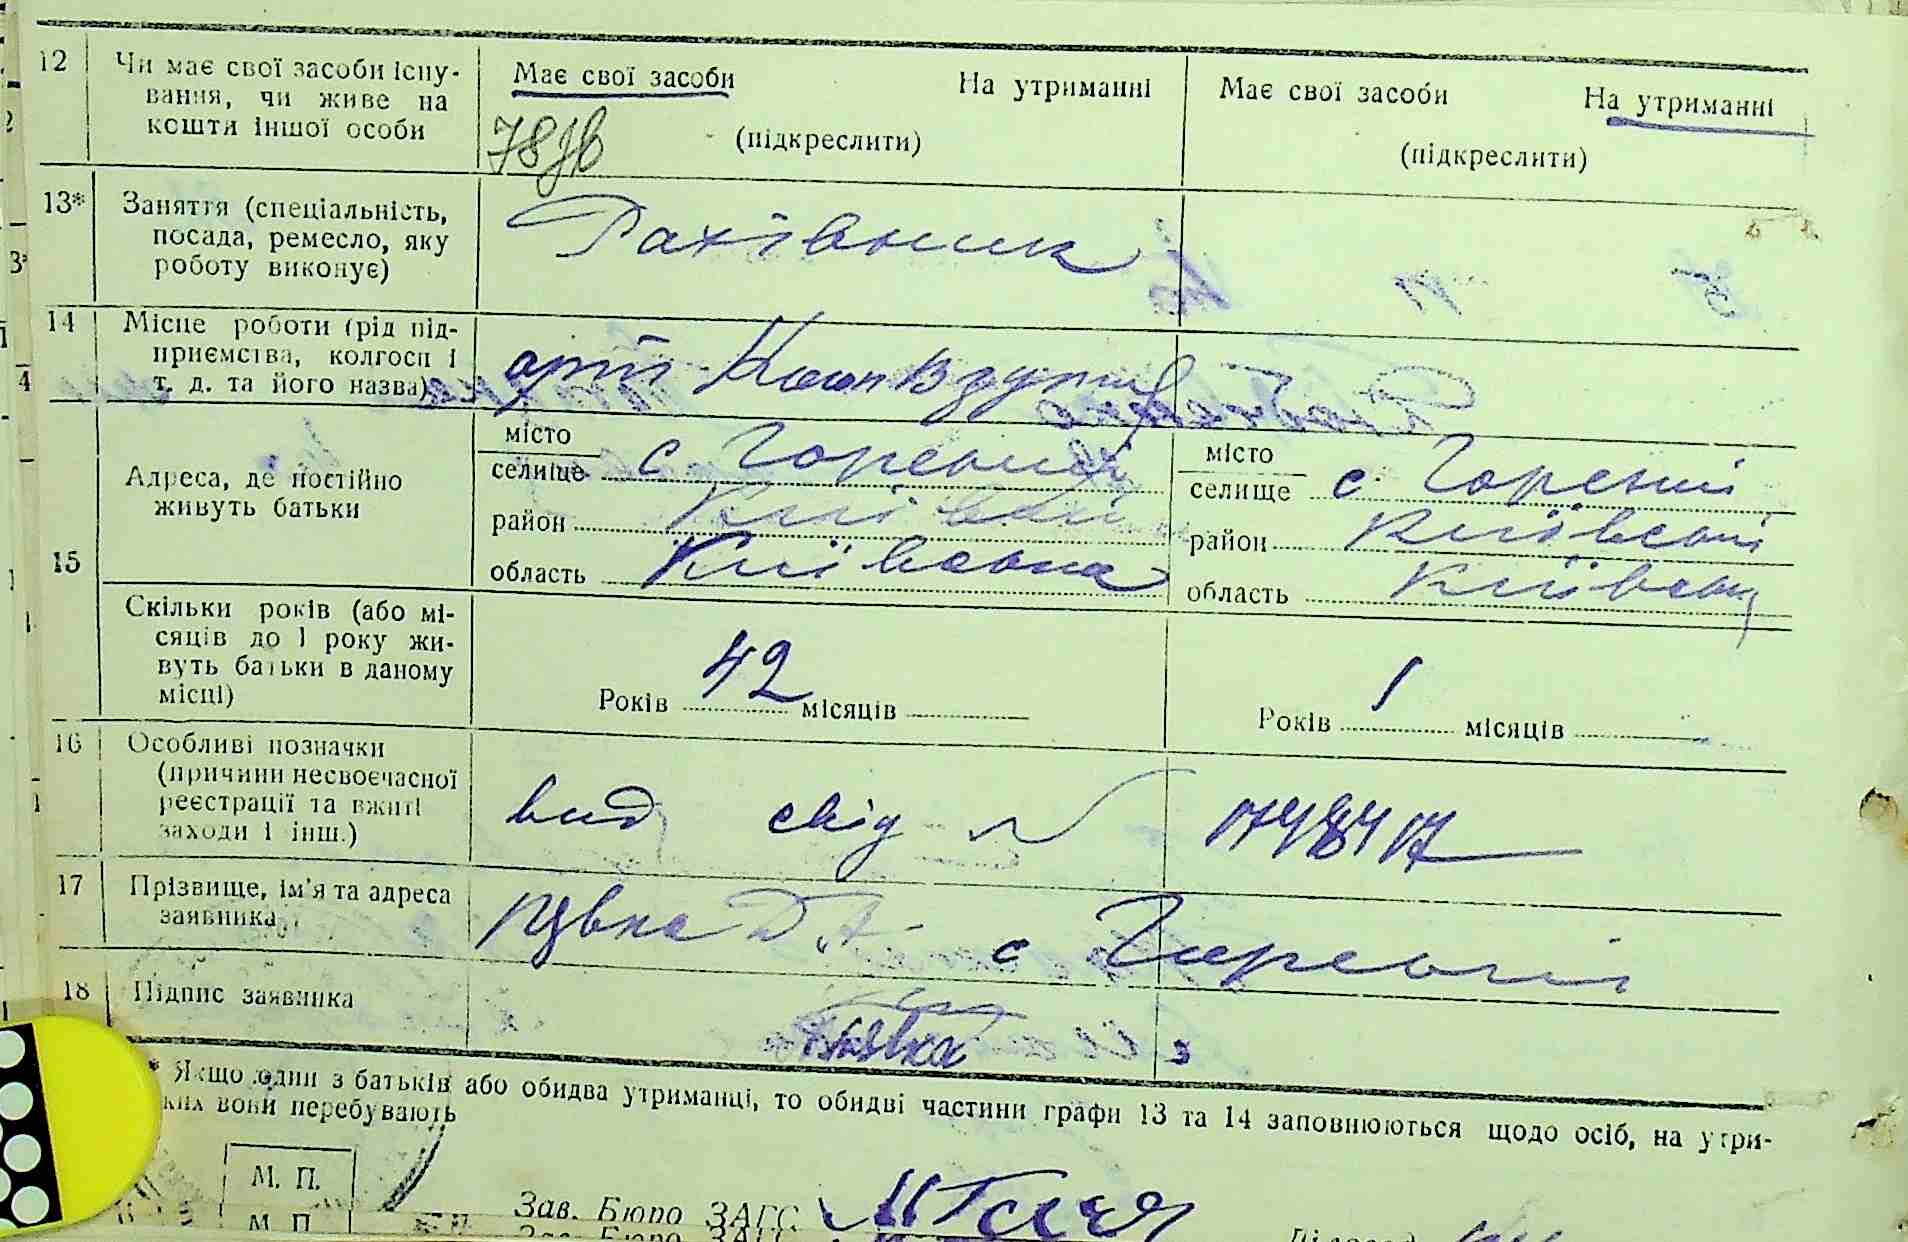 12 Чи має свої засоби існу-
вання, чи живе на
кошти іншої особи
Має свої засоби На утриманні
(підкреслити)
Має свої засоби На утриманні
(підкреслити)
13* Заняття (спеціальність,
посада, ремесло, яку
роботу виконує)
Рахівник
14 Місце роботи (рід під-
приємства, колгосп і
т. д. та його назва)
15 Адреса, де постійно
живуть батьки
місто
селище с Горенка
район Київський
область Київська
місто
селище с. Горенка
район Київський
область Київська
Скільки років (або мі-
сяців до 1 року жи-
вуть батьки в даному
місці)
Років 42 місяців
Років 1 місяців
16 Особливі позначки
(причини несвоєчасної
реєстрації та вжиті
заходи і інш.)
вид свід №
17 Прізвище, ім'я та адреса
заявника
с
18 Підпис заявника
* Якщо один з батьків або обидва утриманці, то обидві частини графи 13 та 14 заповнюються щодо осіб, на утри-
ких вони перебувають
М. П.
Зав. Бюро ЗАГС
М. П.